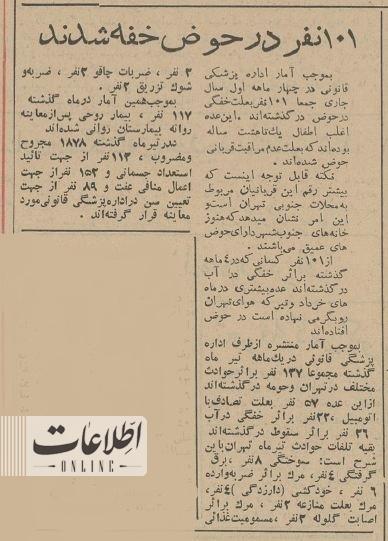 ۱۰۱ نفر در حوض خفه شدند
بموجب آمار اداره پزشکی
قانونی در چهار ماهه اول سال
جاری جمعا ۱۰۱ نفر بعلت خفگی
در حوض در گذشته‌اند. این عده
اغلب اطفال یک تا هشت ساله
بوده‌اند که بعلت عدم مراقبت قربانی
حوض شده‌اند.
نکته قابل توجه اینست که
بیشتر رقم این قربانیان مربوط
به محلات جنوبی تهران است و
این امر نشان میدهد که هنوز
خانه‌های جنوب شهر دارای حوض
های عمیق می‌باشند.
از ۱۰۱ نفر کسانی که در ۴ ماهه
گذشته براثر خفگی در آب
در گذشته‌اند عده بیشتری در ماه
های خرداد و تیر که هوای تهران
رو بگرمی نهاده است در حوض
افتاده‌اند
بموجب آمار منتشره از طرف اداره
پزشگی قانونی در یک ماهه تیر ماه
گذشته مجموعا ۱۳۷ نفر براثر حوادث
مختلف در تهران و حومه در گذشته‌اند
از این عده ۵۷ نفر بعلت تصادف با
اتومبیل، ۲۲ نفر براثر خفگی در آب
۲۶ نفر براثر سقوط در گذشته‌اند
بقیه تلفات حوادث تیر ماه تهران باین
شرح است: سوختگی ۸ نفر، برق
گرفتگی ۴ نفر، مرک براثر ضربه وارده
۶ نفر، خودکشی (دارزدگی) ۴ نفر،
مرک بعلت منازعه ۲ نفر، مرک براثر
اصابت گلوله ۲ نفر، مسمومیت غذائی
۲ نفر، ضربات چاقو ۲ نفر، ضربه و
شوک تزریق ۲ نفر.
بموجب همین آمار در ماه گذشته
۱۱۷ نفر، بیمار روحی پس از معاینه
روانه بیمارستان روانی شده‌اند
در تیر ماه گذشته ۱۸۷۸ مجروح
و مضروب، ۱۱۳ نفر از جهت تائید
استعداد جسمانی و ۱۵۲ نفر از جهت
اعمال منافی عفت و ۸۹ نفر از جهت
تعیین سن در اداره پزشگی قانونی مورد
معاینه قرار گرفته‌اند.
اطلاعات
ONLINE